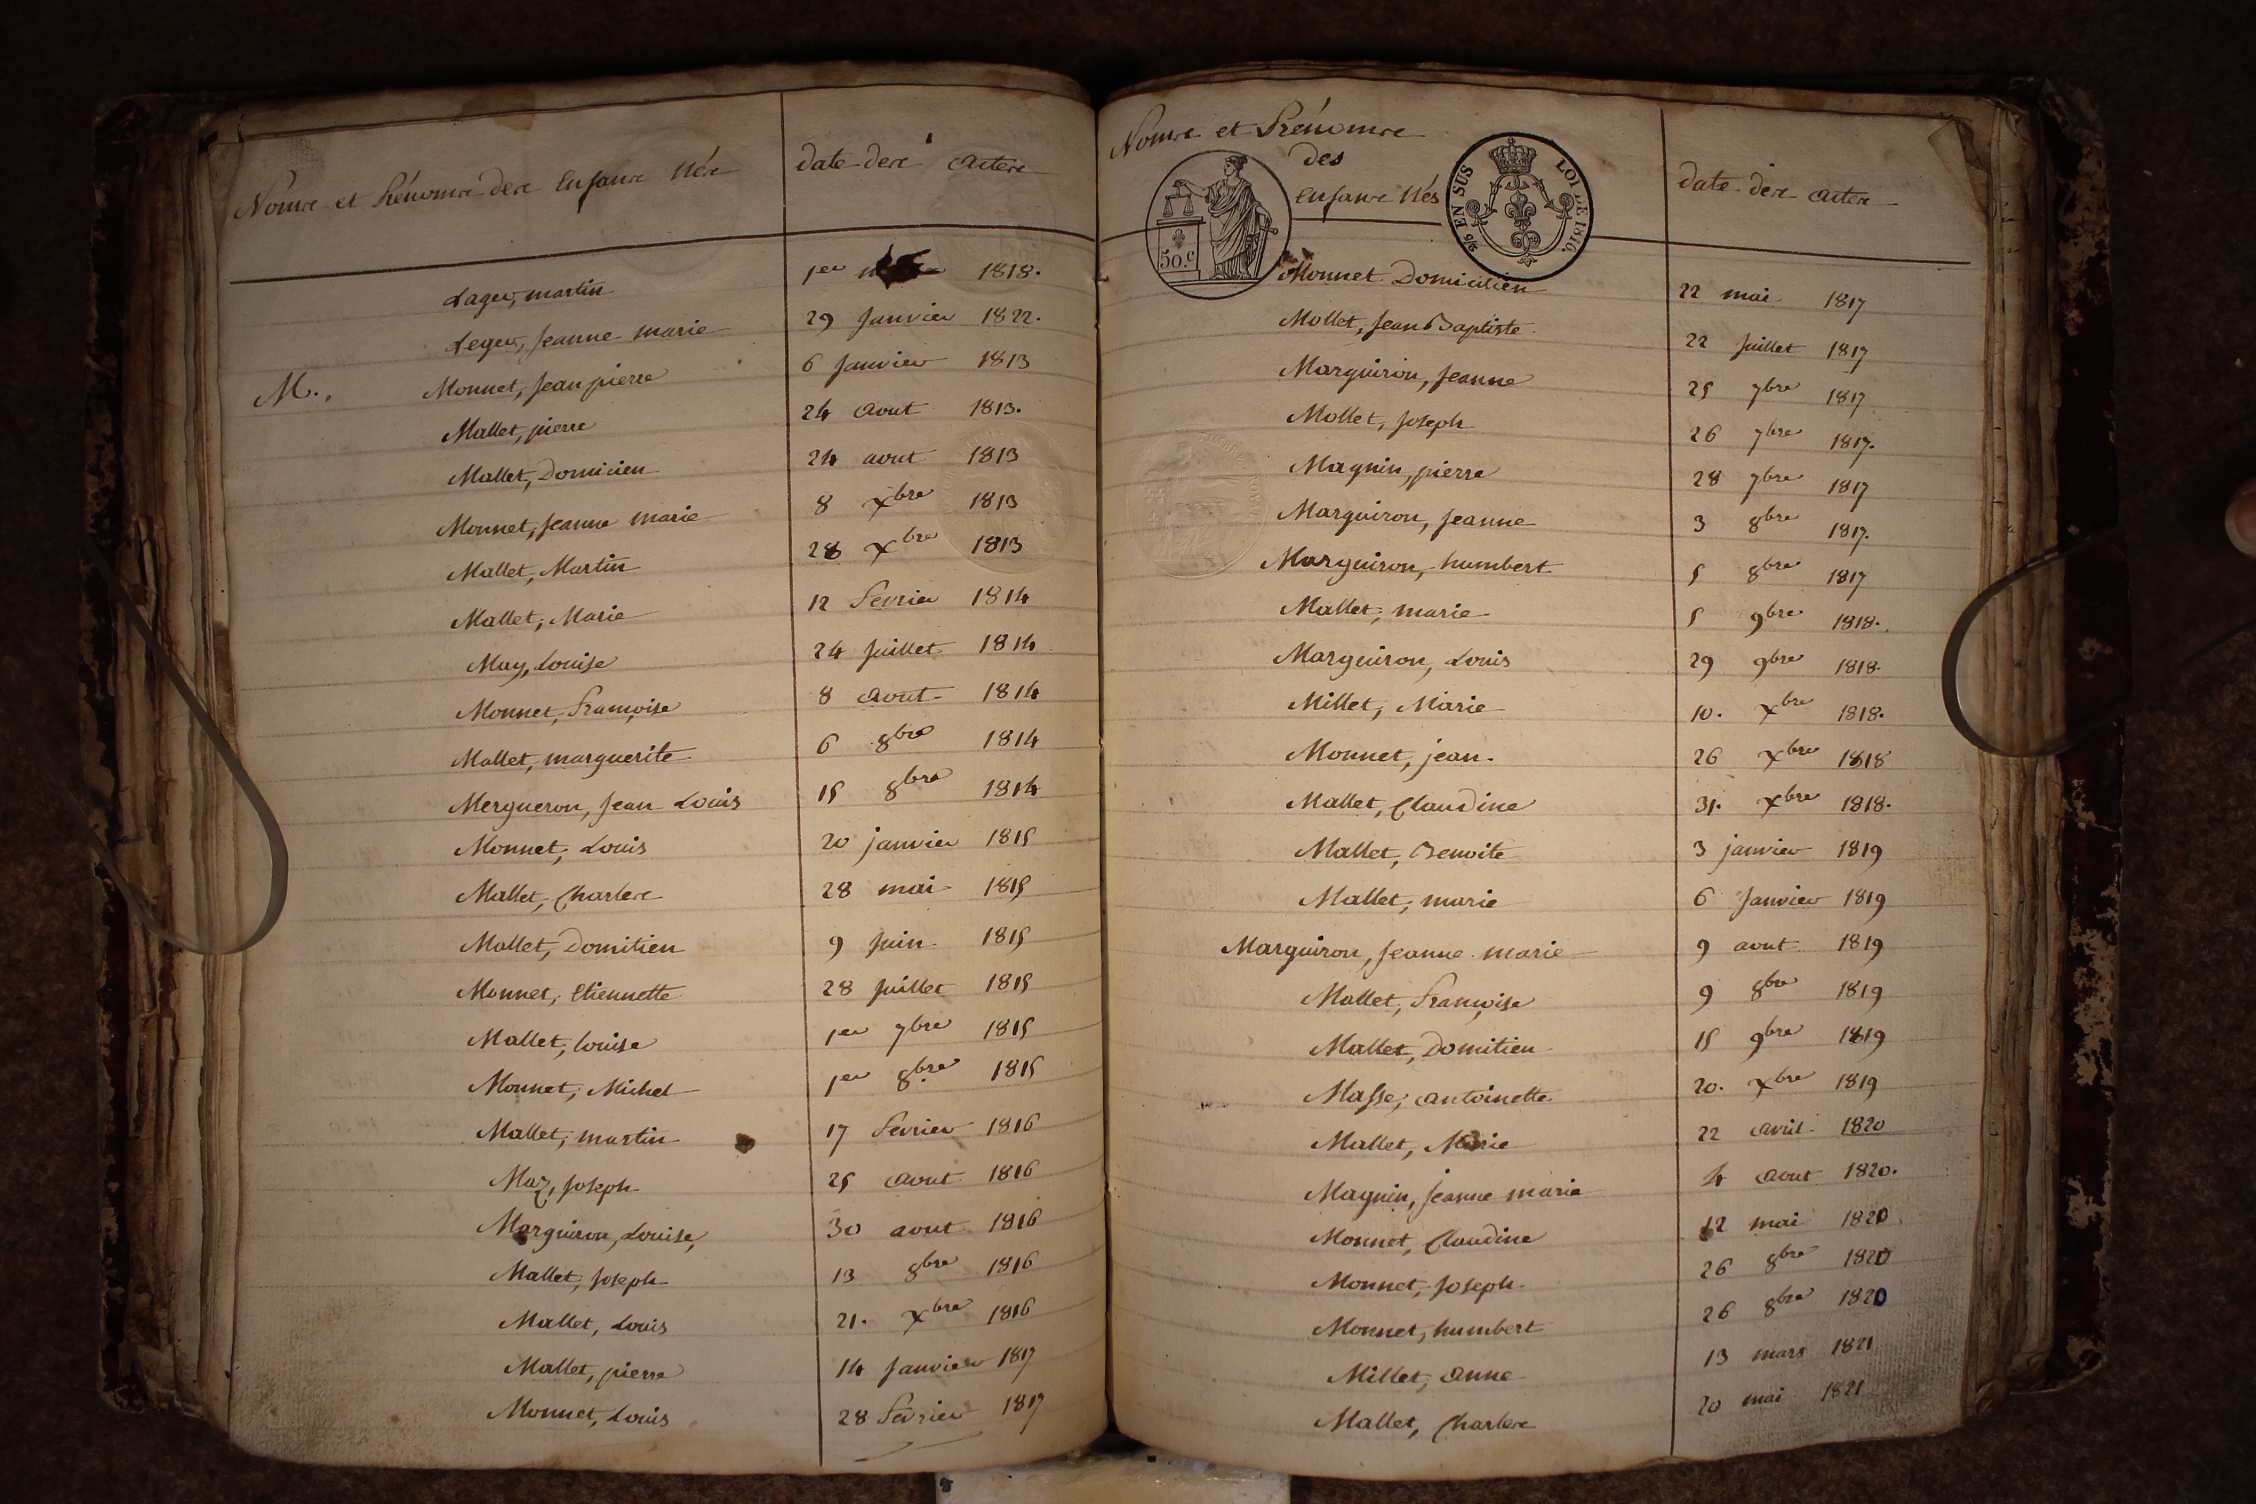 Noms et Prénoms des Enfans Nés date des actes
Lager, martin 1er 1818.
Leger, Jeanne marie 29 Janvier 1822.
M., Monnet, Jean pierre 6 Janvier 1813
Mallet, pierre 24 aout 1813.
Mallet, Domicien 24 aout 1813
Monnet, Jeanne marie 8 Xbre 1813
Mallet, Martin 28 Xbre 1813
Mallet, Marie 12 Fevrier 1814
May, Louise 24 Juillet 1814
Monnet, Françoise 8 aout 1814
Mallet, marguerite 6 8bre 1814
Mergueron, Jean Louis 15 8bre 1814
Monnet, Louis 20 janvier 1815
Mallet, Charles 28 mai 1815
Mallet, Domitien 9 Juin 1815
Monnet, Etiennette 28 Juillet 1815
Mallet, louise 1er 7bre 1815
Monnet, Michel 1er 8bre 1815
Mallet, martin 17 Fevrier 1816
Maz, Joseph 25 aout 1816
Marguiron, Louise, 30 aout 1816
Mallet, Joseph 13 8bre 1816
Mallet, Louis 21. Xbre 1816
Mallet, pierre 14 Janvier 1817
Monnet, Louis 28 Fevrier 1817
Noms et Prénoms
des
Enfans Nés
date des actes
50.c
9/6 EN SUS LOI DE 1816.
Monnet Domicilien 22 mai 1817
Mollet, Jean Baptiste 22 Juillet 1817
Marguiron, Jeanne 25 7bre 1817
Mollet, Joseph 26 7bre 1817.
Magnin, pierre 28 7bre 1817
Marguiron, Jeanne 3 8bre 1817.
Marguiron, humbert 5 8bre 1817
Mallet, marie 5 9bre 1818.
Marguiron, Louis 29 9bre 1818.
Millet, Marie 10. Xbre 1818.
Monnet, jean. 26 Xbre 1818
Mallet, Claudine 31. Xbre 1818.
Mallet, Benoite 3 janvier 1819
Mallet, marie 6 Janvier 1819
Marguiron, Jeanne marie 9 aout 1819
Mallet, Françoise 9 8bre 1819
Mallet, Domitien 15 9bre 1819
Masse, antoinette 20. Xbre 1819
Mallet, Marie 22 avril 1820
Magnin, Jeanne marie 4 aout 1820.
Monnet, Claudine 12 mai 1820
Monnet, Joseph 26 8bre 1820
Monnet, humbert 26 8bre 1820
Millet, anne 13 mars 1821
Mallet, Charles 20 mai 1821